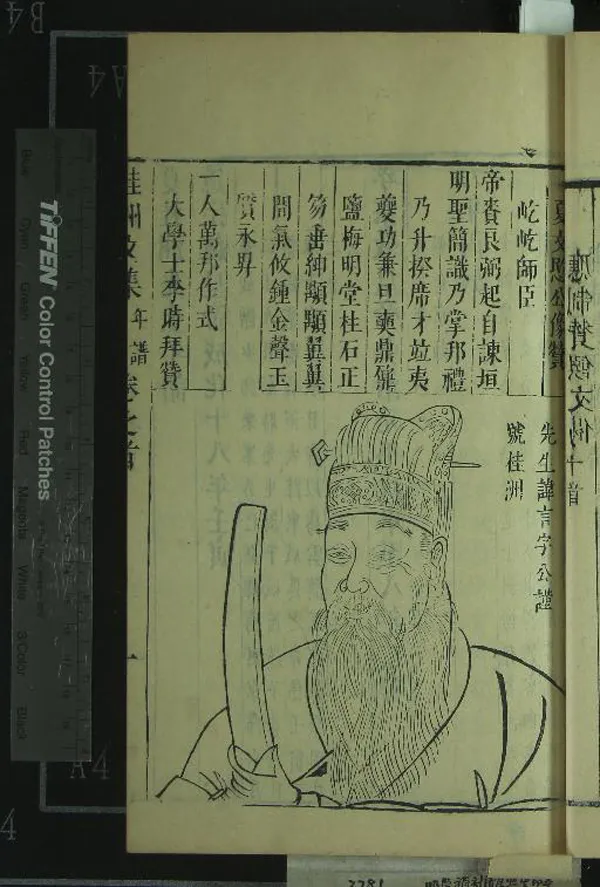 夏文愍公像贊
屹屹師臣
帝賚良弼起自諫垣
明聖簡識乃掌邦禮
乃升揆席才竝夷
夔功兼旦奭鼎鼐
鹽梅明堂柱石正
笏垂紳顒顒翼翼
間氣攸鍾金聲玉
質永昇
一人萬邦作式
大學士李時拜贊
先生諱言字公謹
號桂洲
桂洲文集 年譜 卷之首
一
TIFFEN Color Control Patches
Blue Cyan Green Yellow Red Magenta White 3/Color Black
B4
A4
A4
4